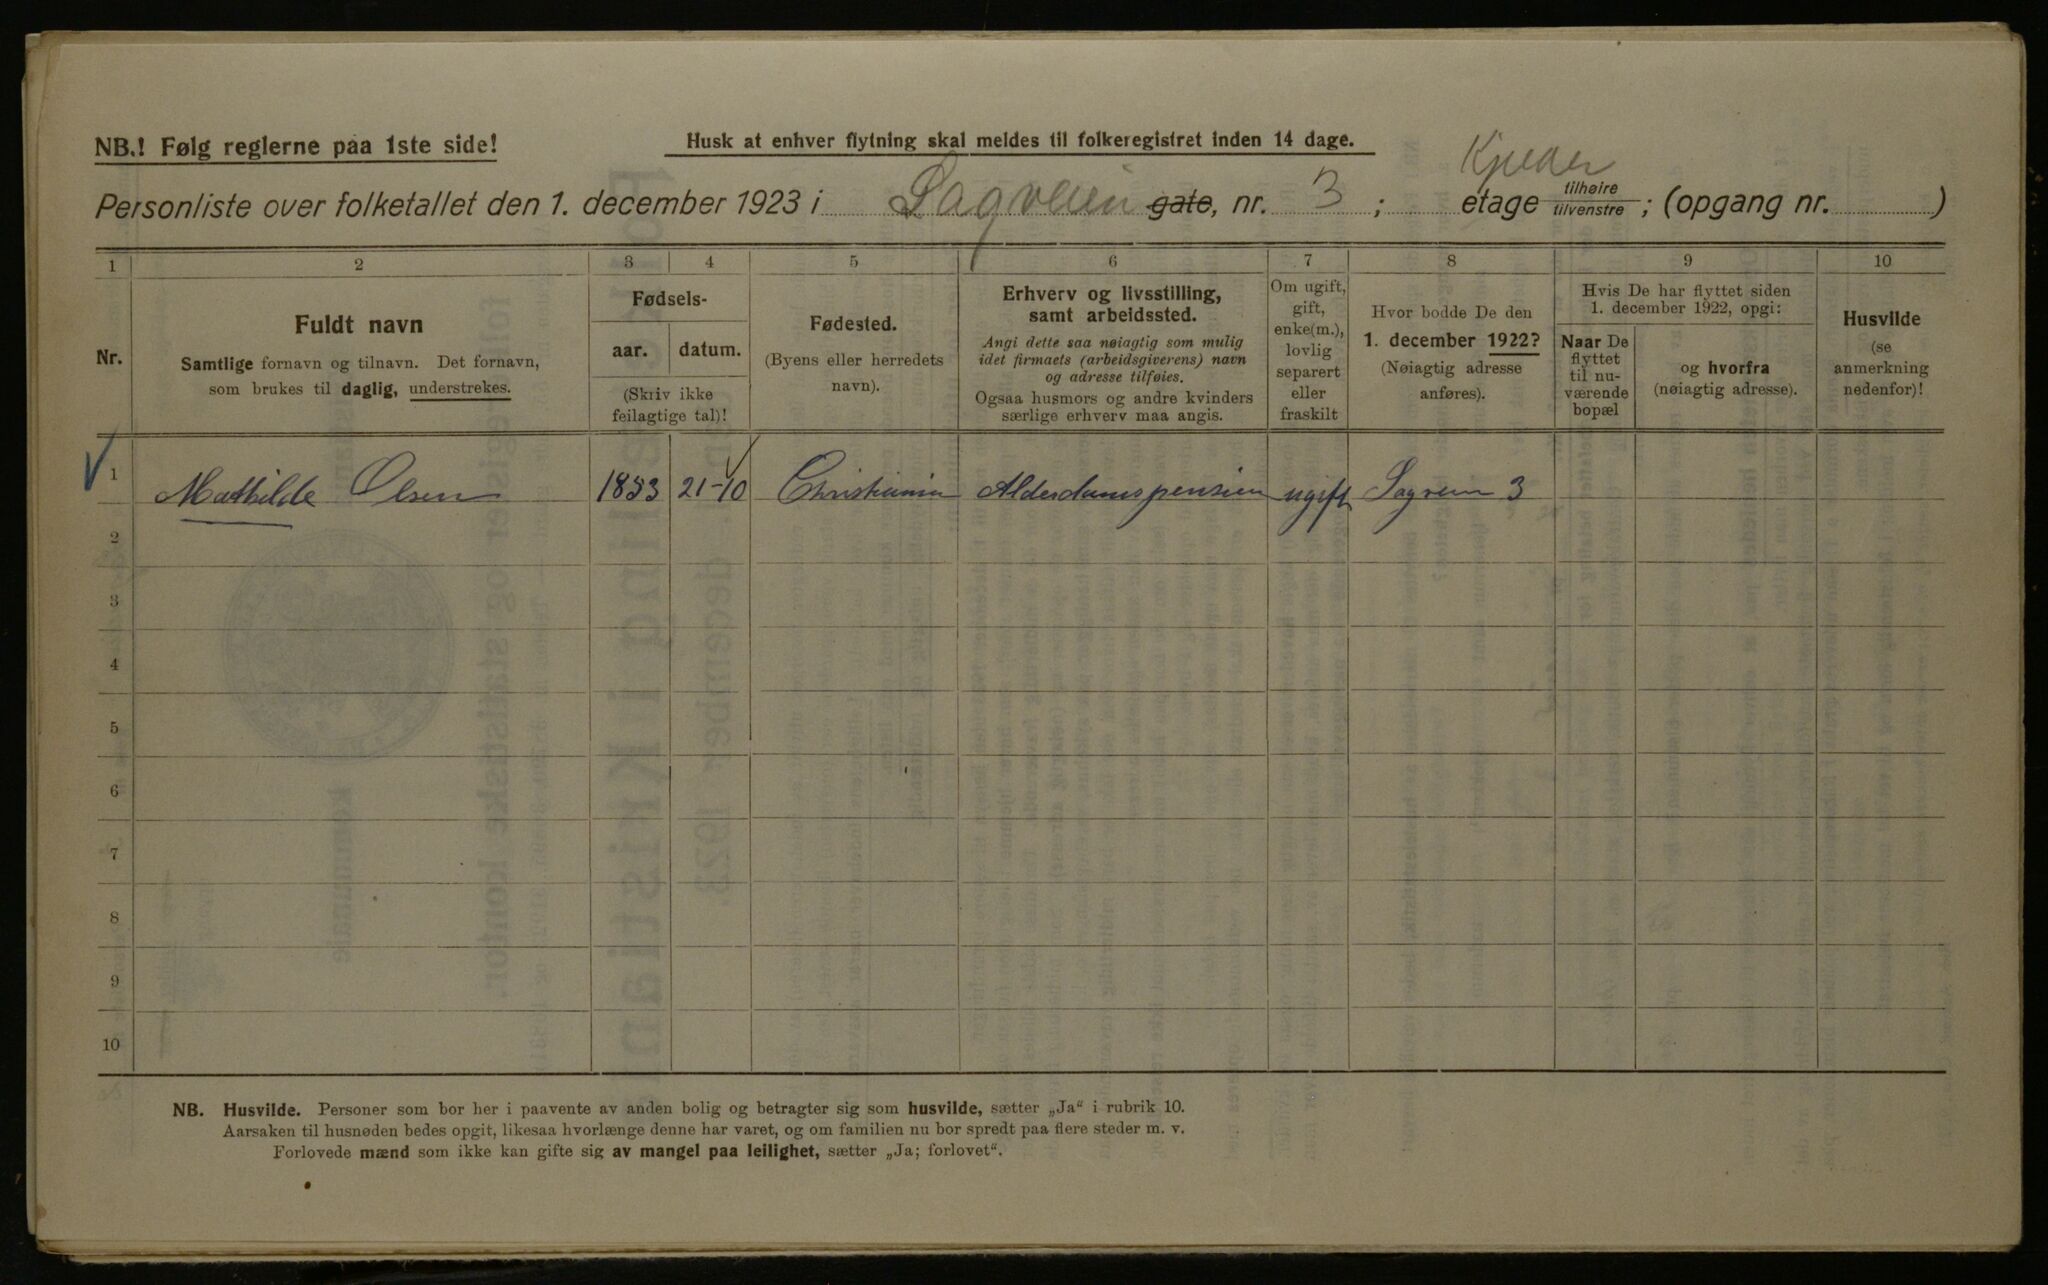 NB.! Følg reglerne paa 1ste side!
Husk at enhver flytning skal meldes til folkeregistret inden 14 dage.
Kjelder
Personliste over folketallet den 1. december 1923 i Sagveien gate, nr. 3; etage tilhøire tilvenstre; (opgang nr. )
1 2 3 4 5 6 7 8 9 10
Nr.
Fuldt navn
Samtlige fornavn og tilnavn. Det fornavn,
som brukes til daglig, understrekes.
Fødsels-
aar. datum.
(Skriv ikke
feilagtige tal)!
Fødested.
(Byens eller herredets
navn).
Erhverv og livsstilling,
samt arbeidssted.
Angi dette saa nøiagtig som mulig
idet firmaets (arbeidsgiverens) navn
og adresse tilføies.
Ogsaa husmors og andre kvinders
særlige erhverv maa angis.
Om ugift,
gift,
enke(m.),
lovlig
separert
eller
fraskilt
Hvor bodde De den
1. december 1922?
(Nøiagtig adresse
anføres).
Hvis De har flyttet siden
1. december 1922, opgi:
Naar De
flyttet
til nu-
værende
bopæl
og hvorfra
(nøiagtig adresse).
Husvilde
(se
anmerkning
nedenfor)!
1 Mathilde Olsen 1853 21-10 Christiania Alderdomspension ugift Sagvein 3
2
3
4
5
6
7
8
9
10
NB. Husvilde. Personer som bor her i paavente av anden bolig og betragter sig som husvilde, sætter „Ja“ i rubrik 10.
Aarsaken til husnøden bedes opgit, likesaa hvorlænge denne har varet, og om familien nu bor spredt paa flere steder m. v.
Forlovede mænd som ikke kan gifte sig av mangel paa leilighet, sætter „Ja; forlovet“.